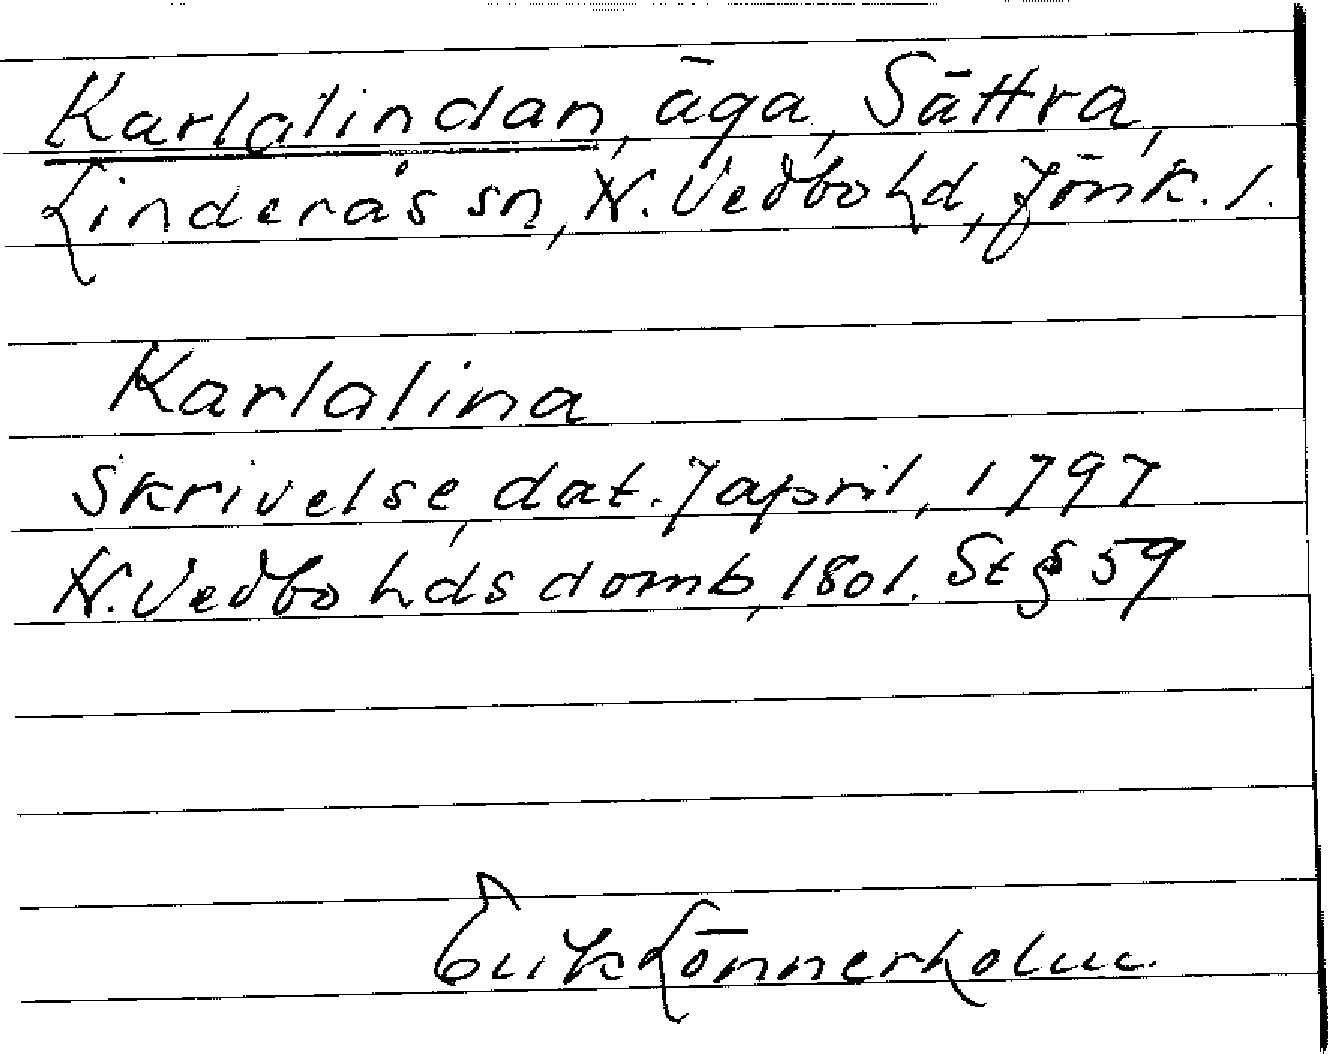 Karlalindan, äga, Sättra,
Linderås sn, N. Vedbo hd, Jönk. l.
Karlalina
Skrivelse, dat. 7 april, 1797
N. Vedbo hds domb, 1801. St § 59
Erik Lönnerholm